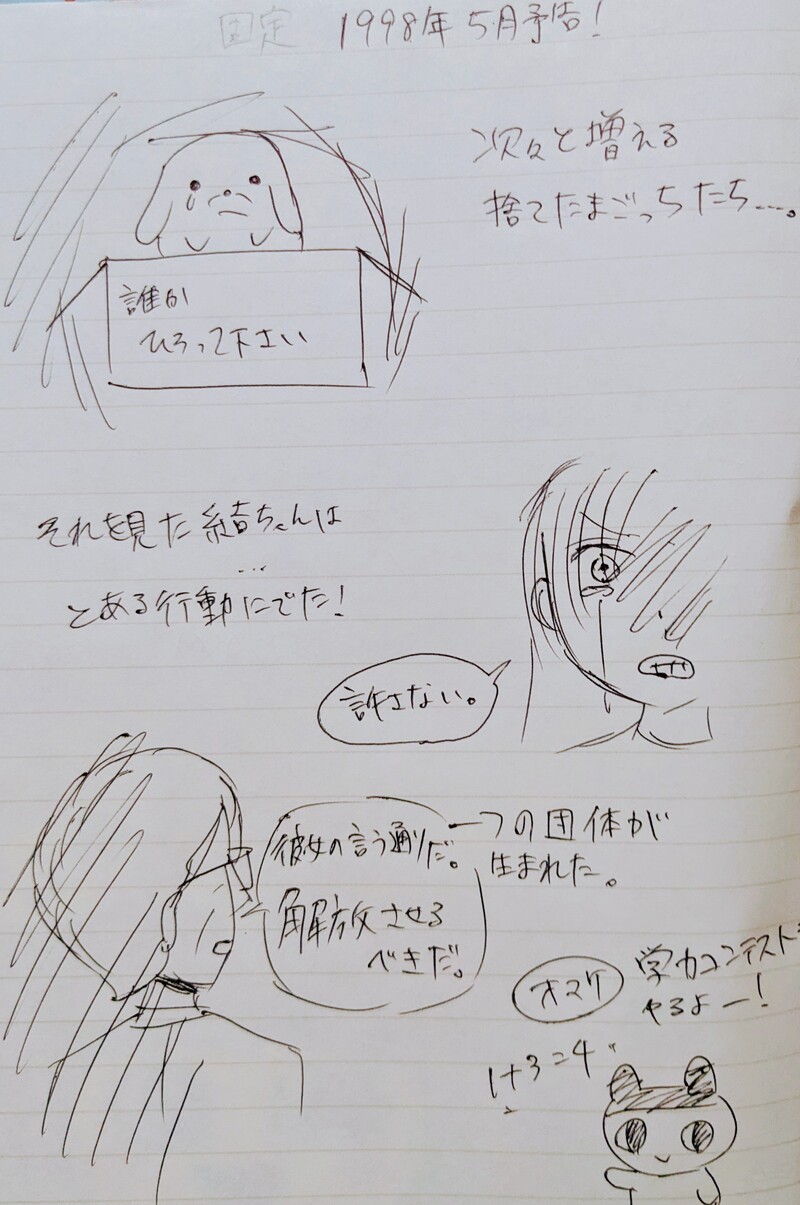 固定 1998年5月予告!
次々と増える
捨てたまごっちたち…。
誰か
ひろって下さい
それを見た結ちゃんは
…
とある行動にでた!
許さない。
彼女の言う通りだ。
解放させる
べきだ。
一つの団体が
生まれた。
オマケ
学力コンテストも
やるよー!
1+3=4